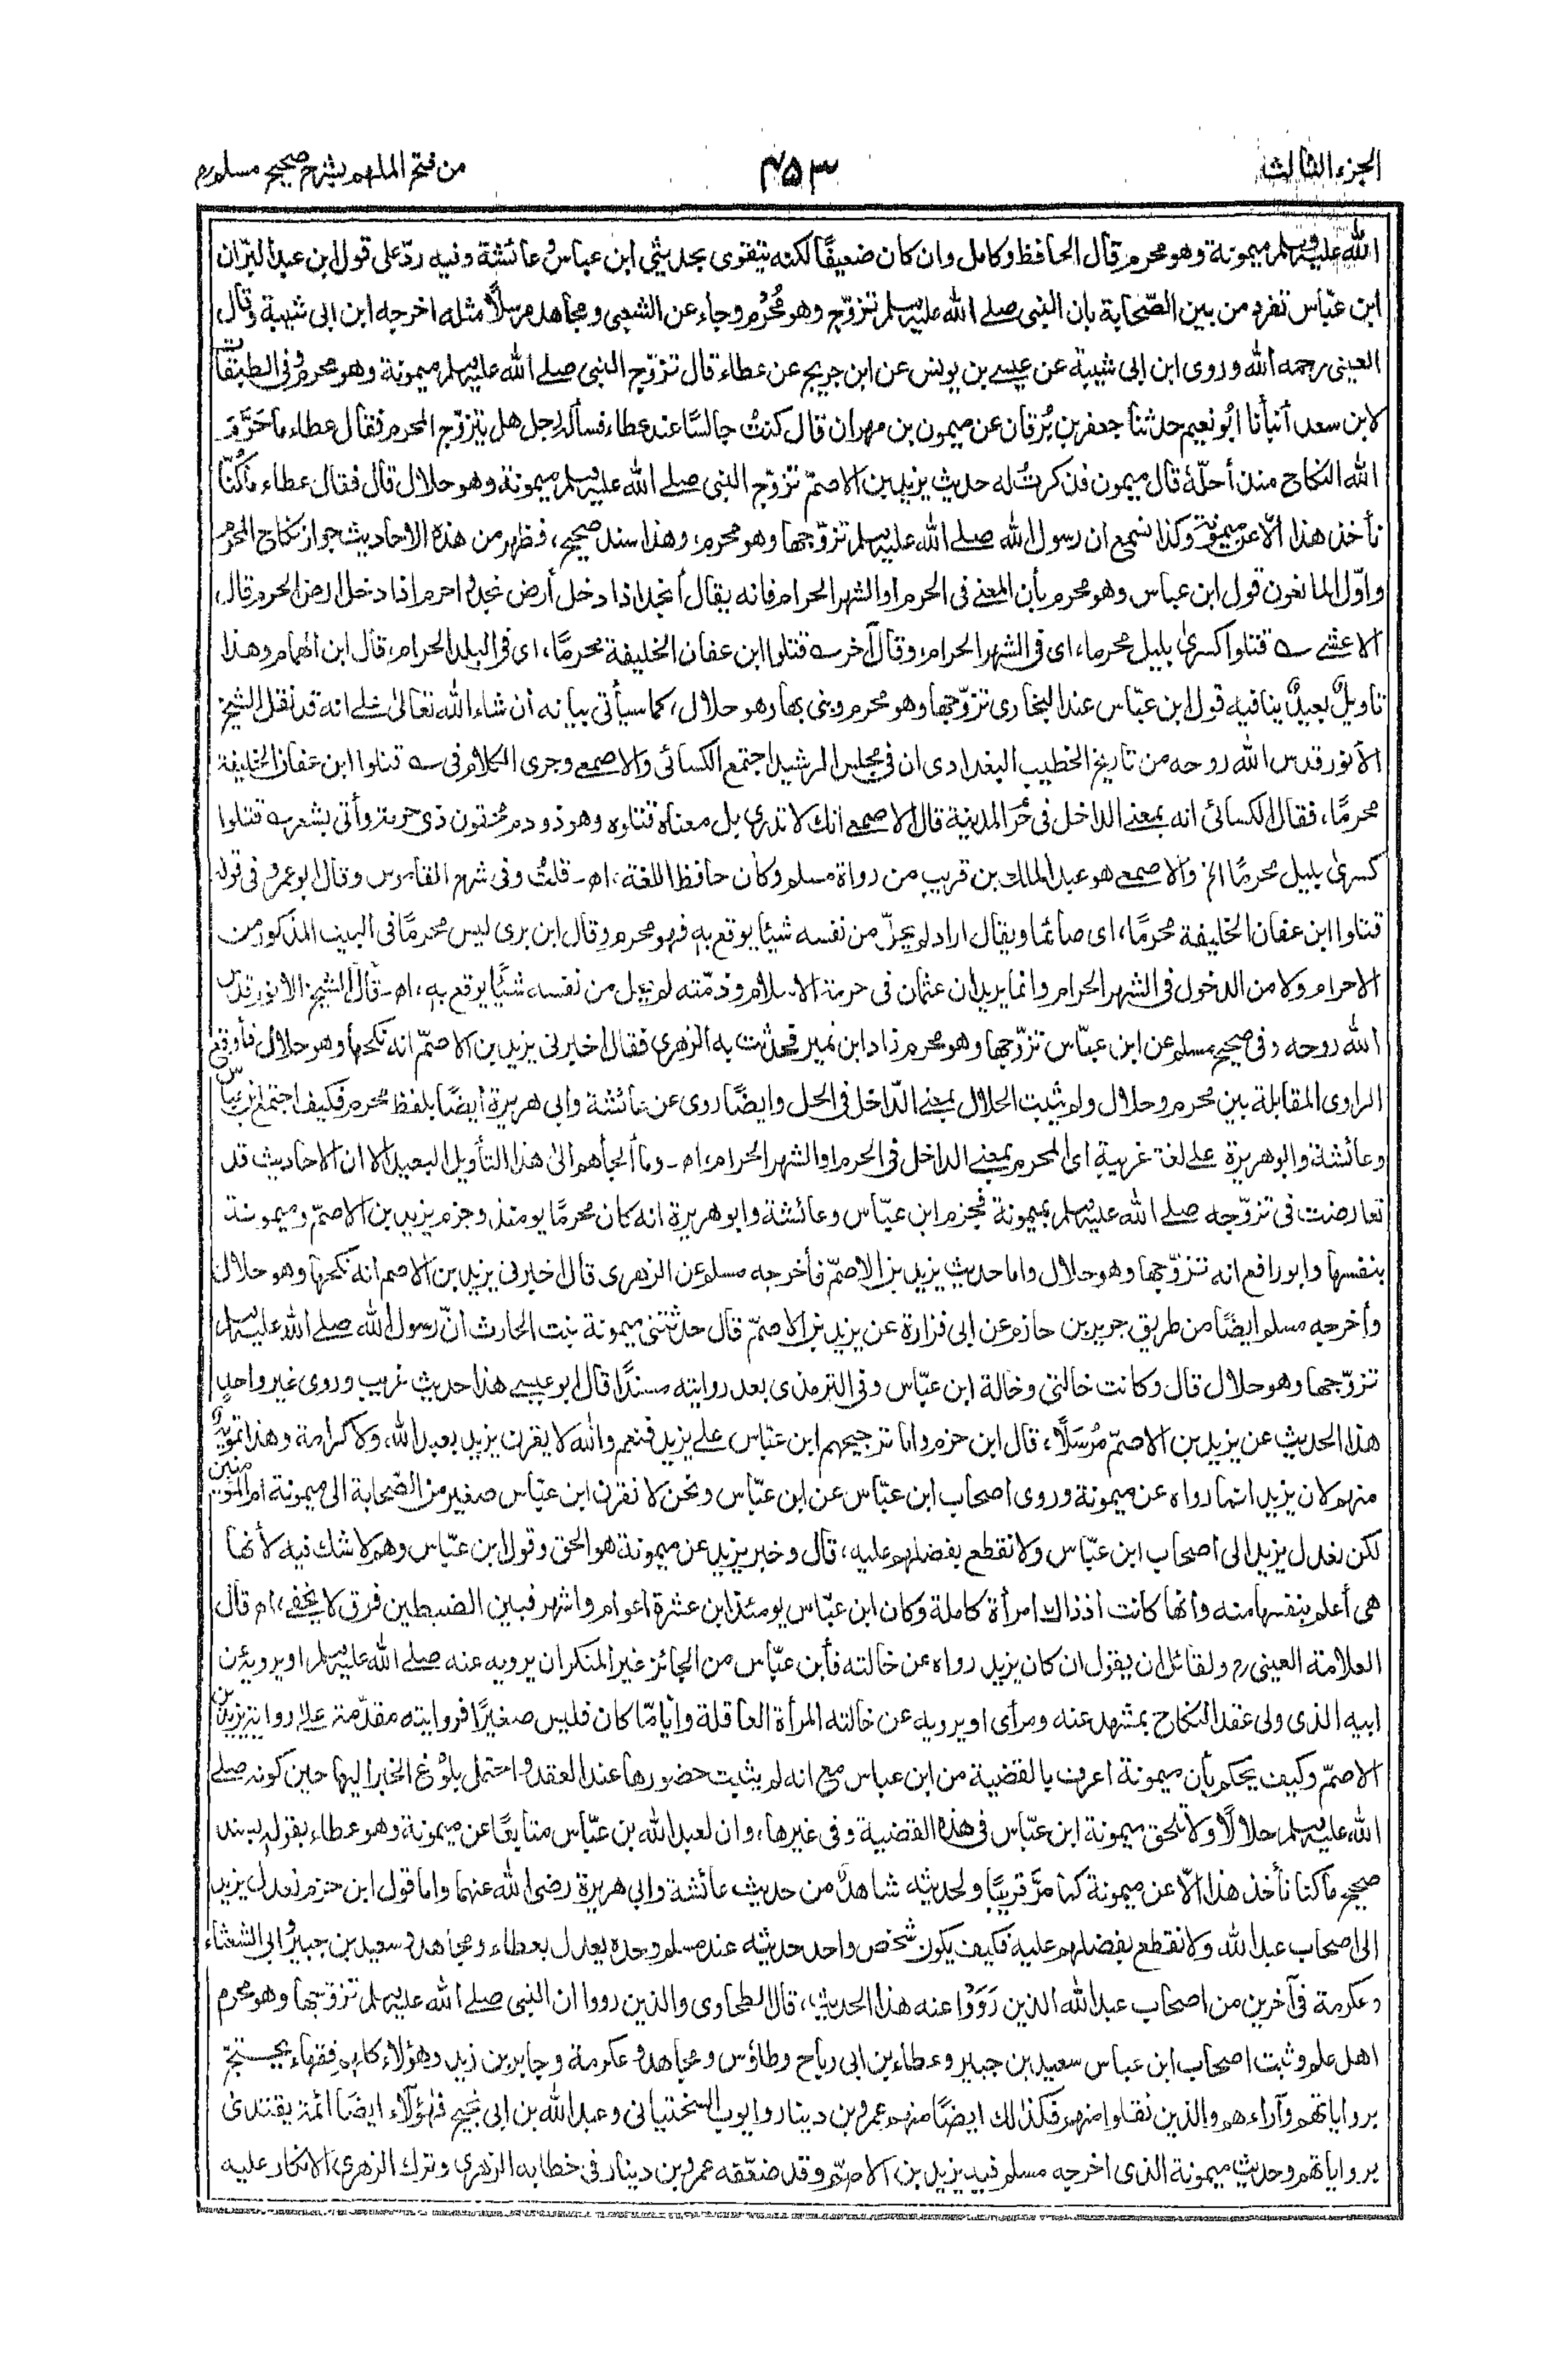 الجزء الثالث
٤٥٣
من فتح الملهم بشرح صحيح مسلم رح
الله عليه وسلم ميمونة وهو محرم قال الحافظ وكامل وان كان ضعيفًا لكنه يتقوى بحديثي ابن عباس وعائشة وفيه ردّ على قول ابن عبد البرّ ان
ابن عبّاس تفرد من بين الصّحابة بان النبى صلى الله عليه وسلم تزوّج وهو مُحْرم وجاء عن الشعبى ومجاهد مرسلًا مثله اخرجه ابن ابى شيبة وقال
العينى رحمه الله وروى ابن ابى شيبة عن عيسى بن يونس عن ابن جريج عن عطاء قال تزوّج النبى صلى الله عليه وسلم ميمونة وهو محرم وفى الطبقات
لابن سعد أنبأنا ابُو نعيم حدثنا جعفر بن بُرْقان عن ميمون بن مهران قال كنتُ جالسًا عند عطاء فسأله رجل هل يتزوّج المحرم فقال عطاء ما حَرَّمَ
الله النكاح منذ أحلّه قال ميمون فذكرتُ له حديث يزيد بن الاصمّ تزوّج النبى صلى الله عليه وسلم ميمونة وهو حلال قال فقال عطاء ما كُنّا
نأخذ هذا الّا عن ميمونة وكنا نسمع ان رسول الله صلى الله عليه وسلم تزوّجها وهو محرم، وهذا سند صحيح، فظهر من هذه الاحاديث جواز نكاح المحرم
واوّل المانعون قول ابن عباس وهو محرم بأن المعنى فى الحرم او الشهر الحرام فانه يقال أنجد اذا دخل أرض نجد واحرم اذا دخل ارض الحرم قال
الاعشى ؎ قتلوا كسرىٰ بليل محرما، اى فى الشهر الحرام، وقال آخر ؎ قتلوا ابن عفان الخليفة محرمًا، اى فى البلد الحرام، قال ابن الهمام وهذا
تاويلٌ بعيدٌ ينافيه قول ابن عبّاس عند البخارى تزوّجها وهو محرم وبنى بها وهو حلال، كما سيأتى بيانه أن شاء الله تعالىٰ على انه قد نقل الشيخ
الأنور قدس الله روحه من تاريخ الخطيب البغدادى ان فى مجلس الرشيد اجتمع الكسائى والاصمعى وجرى الكلام فى ؎ قتلوا ابن عفان الخليفة
محرمًا، فقال الكسائى انه بمعنى الداخل فى حرَم المدينة قال الاصمعى انك لا تدرى بل معناه قتلوه وهو ذو دم محقون ذى حرمة وأتى بشعر ؎ قتلوا
كسرىٰ بليل محرمًا الخ والاصمعى هو عبد الملك بن قريب من رواة مسلم وكان حافظ اللغة، اھ۔ قلتُ وفى شرح القاموس وقال ابو عمرو فى قوله
قتلوا ابن عفان الخليفة محرمًا، اى صائمًا ويقال اراد لم يحلّ من نفسه شيئًا يوقع به فهو محرم وقال ابن برى ليس محرمًا فى البيت المذكور من
الاحرام ولا من الدخول فى الشهر الحرام وانما يريد ان عثمان فى حرمة الاسلام وذمّته لم يحل من نفسه شيئًا يوقع به، اھ۔ قال الشيخ الانور قدس
الله روحه وفى صحيح مسلم عن ابن عبّاس تزوّجها وهو محرم زاد ابن نمير فحدثت به الزهرى فقال اخبرنى يزيد بن الاصمّ انه نكحها وهو حلال فأوقع
الراوى المقابلة بين محرم وحلال ولم يثبت الحلال بمعنى الدّاخل فى الحل وايضًا روى عن عائشة وابى هريرة أيضًا بلفظ محرم فكيف اجتمع ابن عباس
وعائشة وابو هريرة على لغة غريبة اى المحرم بمعنى الداخل فى الحرم او الشهر الحرام، اھ۔ وما ألجأهم الىٰ هذا التأويل البعيد الا ان الاحاديث قد
تعارضت فى تزوّجه صلى الله عليه وسلم بميمونة فجزم ابن عبّاس وعائشة وابو هريرة انه كان محرمًا يومئذ، وجزم يزيد بن الاصمّ وميمونة
بنفسها وابو رافع انه تزوّجها وهو حلال واما حديث يزيد بن الاصمّ فأخرجه مسلم عن الزهرى قال اخبرنى يزيد بن الاصم انه نكحها وهو حلال
وأخرجه مسلم ايضًا من طريق جرير بن حازم عن ابى فزارة عن يزيد بن الاصمّ قال حدثتنى ميمونة بنت الحارث انّ رسول الله صلى الله عليه وسلم
تزوّجها وهو حلال قال وكانت خالتى وخالة ابن عبّاس وفى الترمذى بعد روايته مسندًا قال ابو عيسى هذا حديث غريب وروى غير واحد
هذا الحديث عن يزيد بن الاصمّ مُرْسَلًا، قال ابن حزم واما ترجيحهم ابن عبّاس على يزيد فنعم والله لا يقرن يزيد بعبد الله، ولا كرامة وهذا تمويهٌ
منهم لان يزيد انما رواه عن ميمونة وروى اصحاب ابن عبّاس عن ابن عبّاس ونحن لا نقرن ابن عبّاس صغير من الصّحابة الى ميمونة ام المؤمنين
لكن نعدل يزيد الى أصحاب ابن عبّاس ولا نقطع بفضلهم عليه، قال وخبر يزيد عن ميمونة هو الحق وقول ابن عبّاس وهم لا شك فيه لأنها
هى أعلم بنفسها منه وانها كانت اذ ذاك امرأة كاملة وكان ابن عبّاس يومئذ ابن عشرة اعوام واشهر فبين الضبطين فرق لا يخفى، اھ قال
العلامة العينى رح ولقائل ان يقول ان كان يزيد رواه عن خالته فأبن عبّاس من الجائز غير المنكر ان يرويه عنه صلى الله عليه وسلم او يرويه عن
ابيه الذى ولى عقد النكاح بمشهد عنه ومرأى او يرويه عن خالته المرأة العاقلة وأيامّا كان فليس صغيرًا فروايته مقدّمة على رواية يزيد بن
الاصمّ وكيف يحكم بأن ميمونة اعرف بالقضية من ابن عباس مع انه لم يثبت حضورها عند العقد واحتمل بلوغ الخبر اليها حين كونه صلى
الله عليه وسلم حلالًا ولا تلحق ميمونة ابن عبّاس فى هذه القضية وفى غيرها، وان لعبد الله بن عبّاس متابعًا عن ميمونة وهو عطاء بقوله بسند
صحيح ما كنا نأخذ هذا الّا عن ميمونة كما مرَّ قريبًا ولحديثه شاهدٌ من حديث عائشة وابى هريرة رضى الله عنهما واما قول ابن حزم نعدل يزيد
الى اصحاب عبد الله ولا نقطع بفضلهم عليه فكيف يكون شخص واحد حديثه عند مسلم وحده يعدل بعطاء ومجاهد وسعيد بن جبير وابى الشعثاء
وعكرمة فى آخرين من اصحاب عبد الله الذين رَوَوْا عنه هذا الحديث، قال الطحاوى والذين رووا ان النبى صلى الله عليه وسلم تزوّجها وهو محرم
اهل علم وثبت اصحاب ابن عباس سعيد بن جبير وعطاء بن ابى رباح وطاؤس ومجاهد وعكرمة وجابر بن زيد وهؤلاء كلهم فقهاء يحتجّ
برواياتهم وآراءهم والذين نقلوا منهم فكذالك ايضًا منهم عمرو بن دينار وايوب السختيانى وعبد الله بن ابى نجيح فهٰؤلآء ايضًا ائمة يقتدى
برواياتهم وحديث ميمونة الذى اخرجه مسلم فيه يزيد بن الاصمّ وقد ضعّفه عمرو بن دينار فى خطابه الزهرى وترك الزهرى الانكار عليه